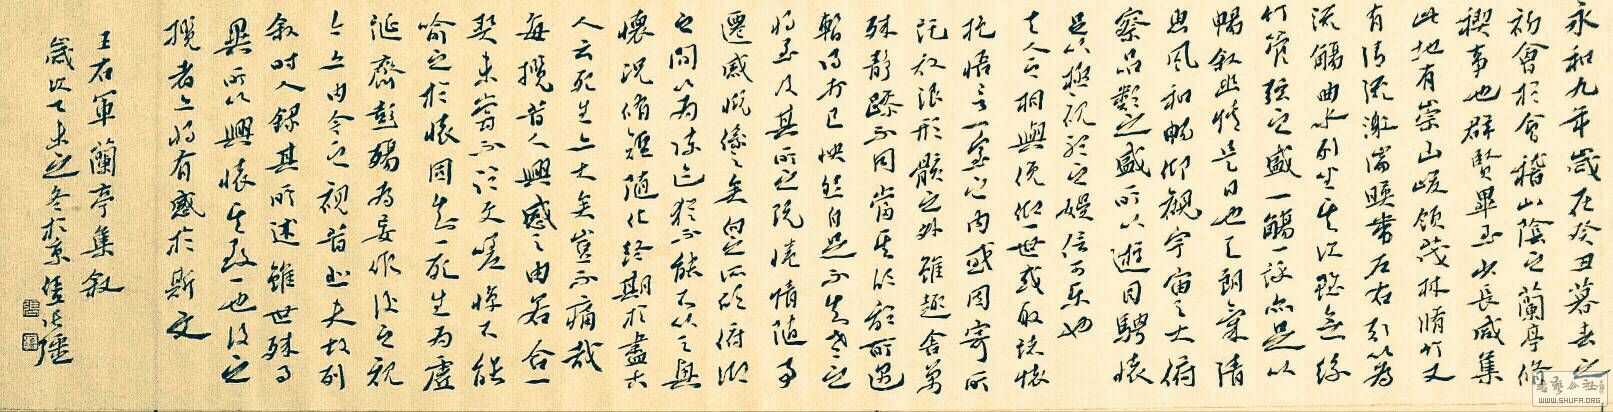 永和九年歲在癸丑暮春之
初會於會稽山陰之蘭亭脩
禊事也群賢畢至少長咸集
此地有崇山峻領茂林脩竹又
有清流激湍暎帶左右引以為
流觴曲水列坐其次雖無絲
竹管弦之盛一觴一詠亦足以
暢敘幽情是日也天朗氣清
惠風和暢仰觀宇宙之大俯
察品類之盛所以遊目騁懷
足以極視聽之娛信可樂也
夫人之相與俯仰一世或取諸懷
抱悟言一室之內或因寄所
託放浪形骸之外雖趣舍萬
殊靜躁不同當其欣於所遇
暫得於己快然自足不知老之
將至及其所之既惓情隨事
遷感慨係之矣向之所欣俯仰
之間以為陳迹猶不能不以之興
懷況脩短隨化終期於盡古
人云死生亦大矣豈不痛哉
每攬昔人興感之由若合一
契未嘗不臨文嗟悼不能
喻之於懷固知一死生為虛
誕齊彭殤為妄作後之視
今亦由今之視昔悲夫故列
敘時人錄其所述雖世殊事
異所以興懷其致一也後之
攬者亦將有感於斯文
王右軍蘭亭集敘
歲次丁未之冬於京
WWW.SHUFA.ORG